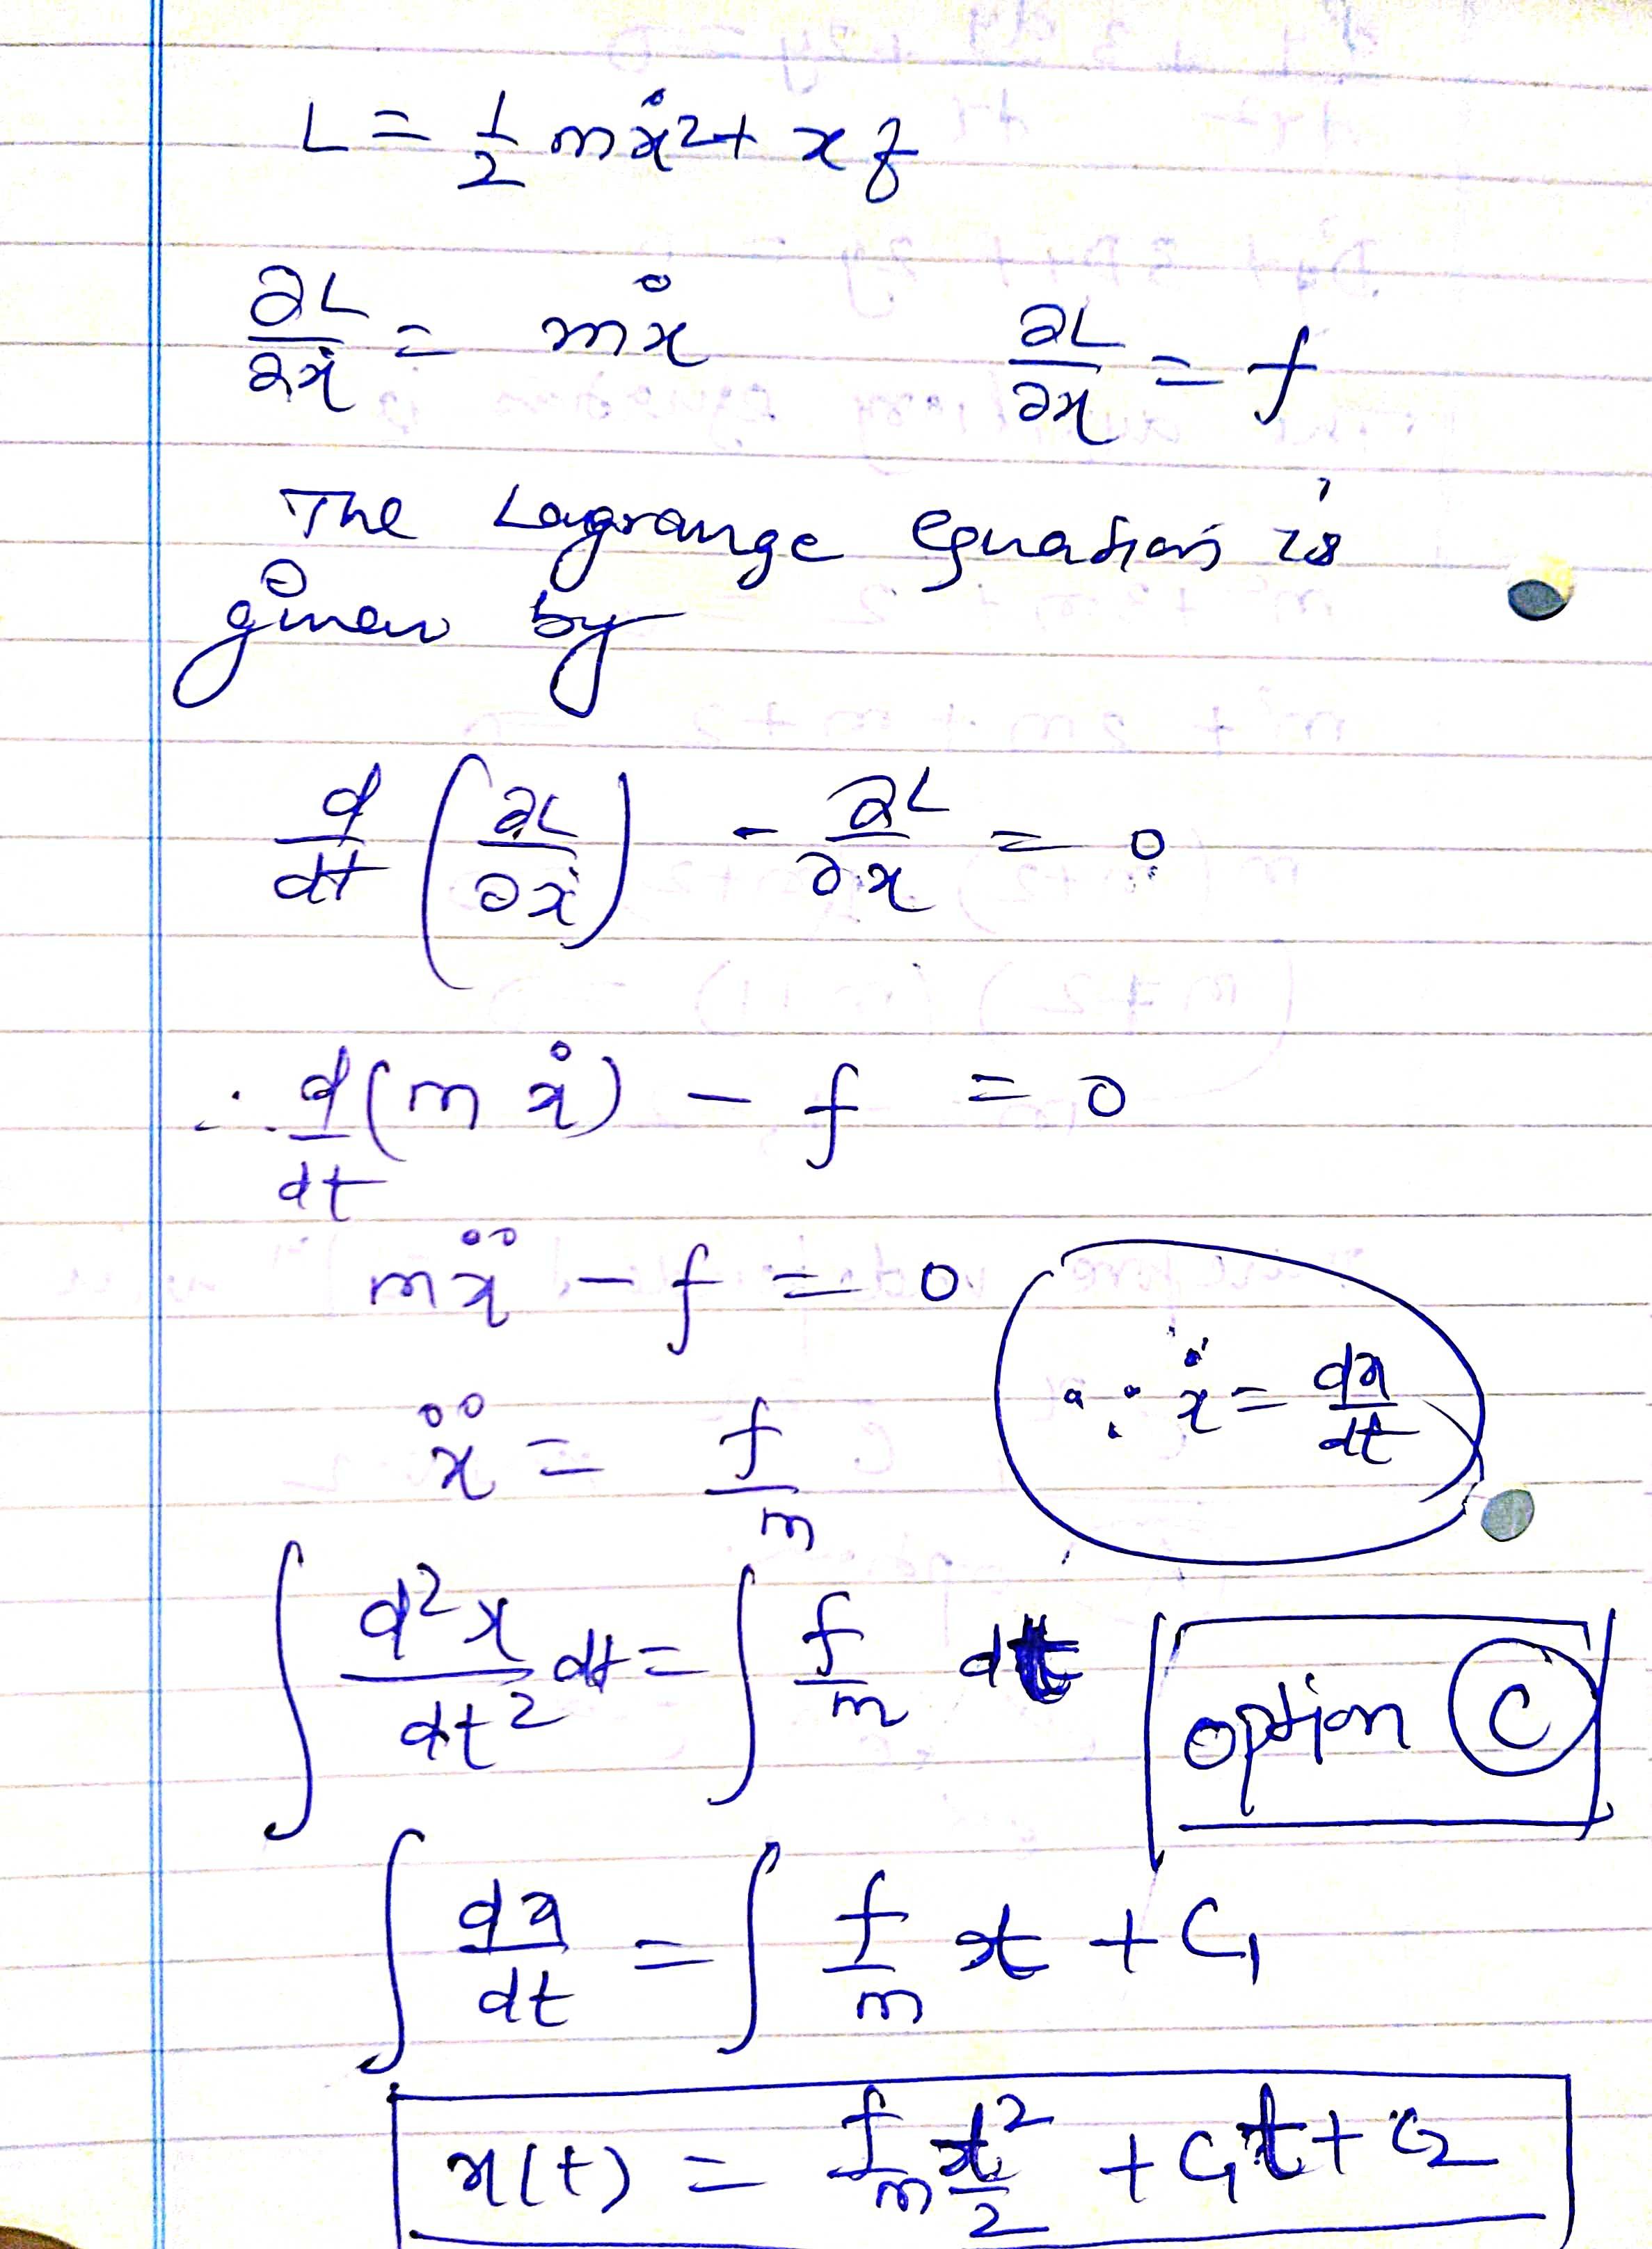 L = 1/2 mẋ² + x f
∂L/∂ẋ = mẋ ∂L/∂x = f
The Lagrange equation is
given by
d/dt (∂L/∂ẋ) - ∂L/∂x = 0
∴ d/dt (m ẋ) - f = 0
mẍ - f = 0
∵ ẋ = dx/dt
ẍ = f/m
∫ d²x/dt² dt = ∫ f/m dt
option C
∫ dx/dt = ∫ f/m t + C₁
x(t) = f/m t²/2 + C₁t + C₂